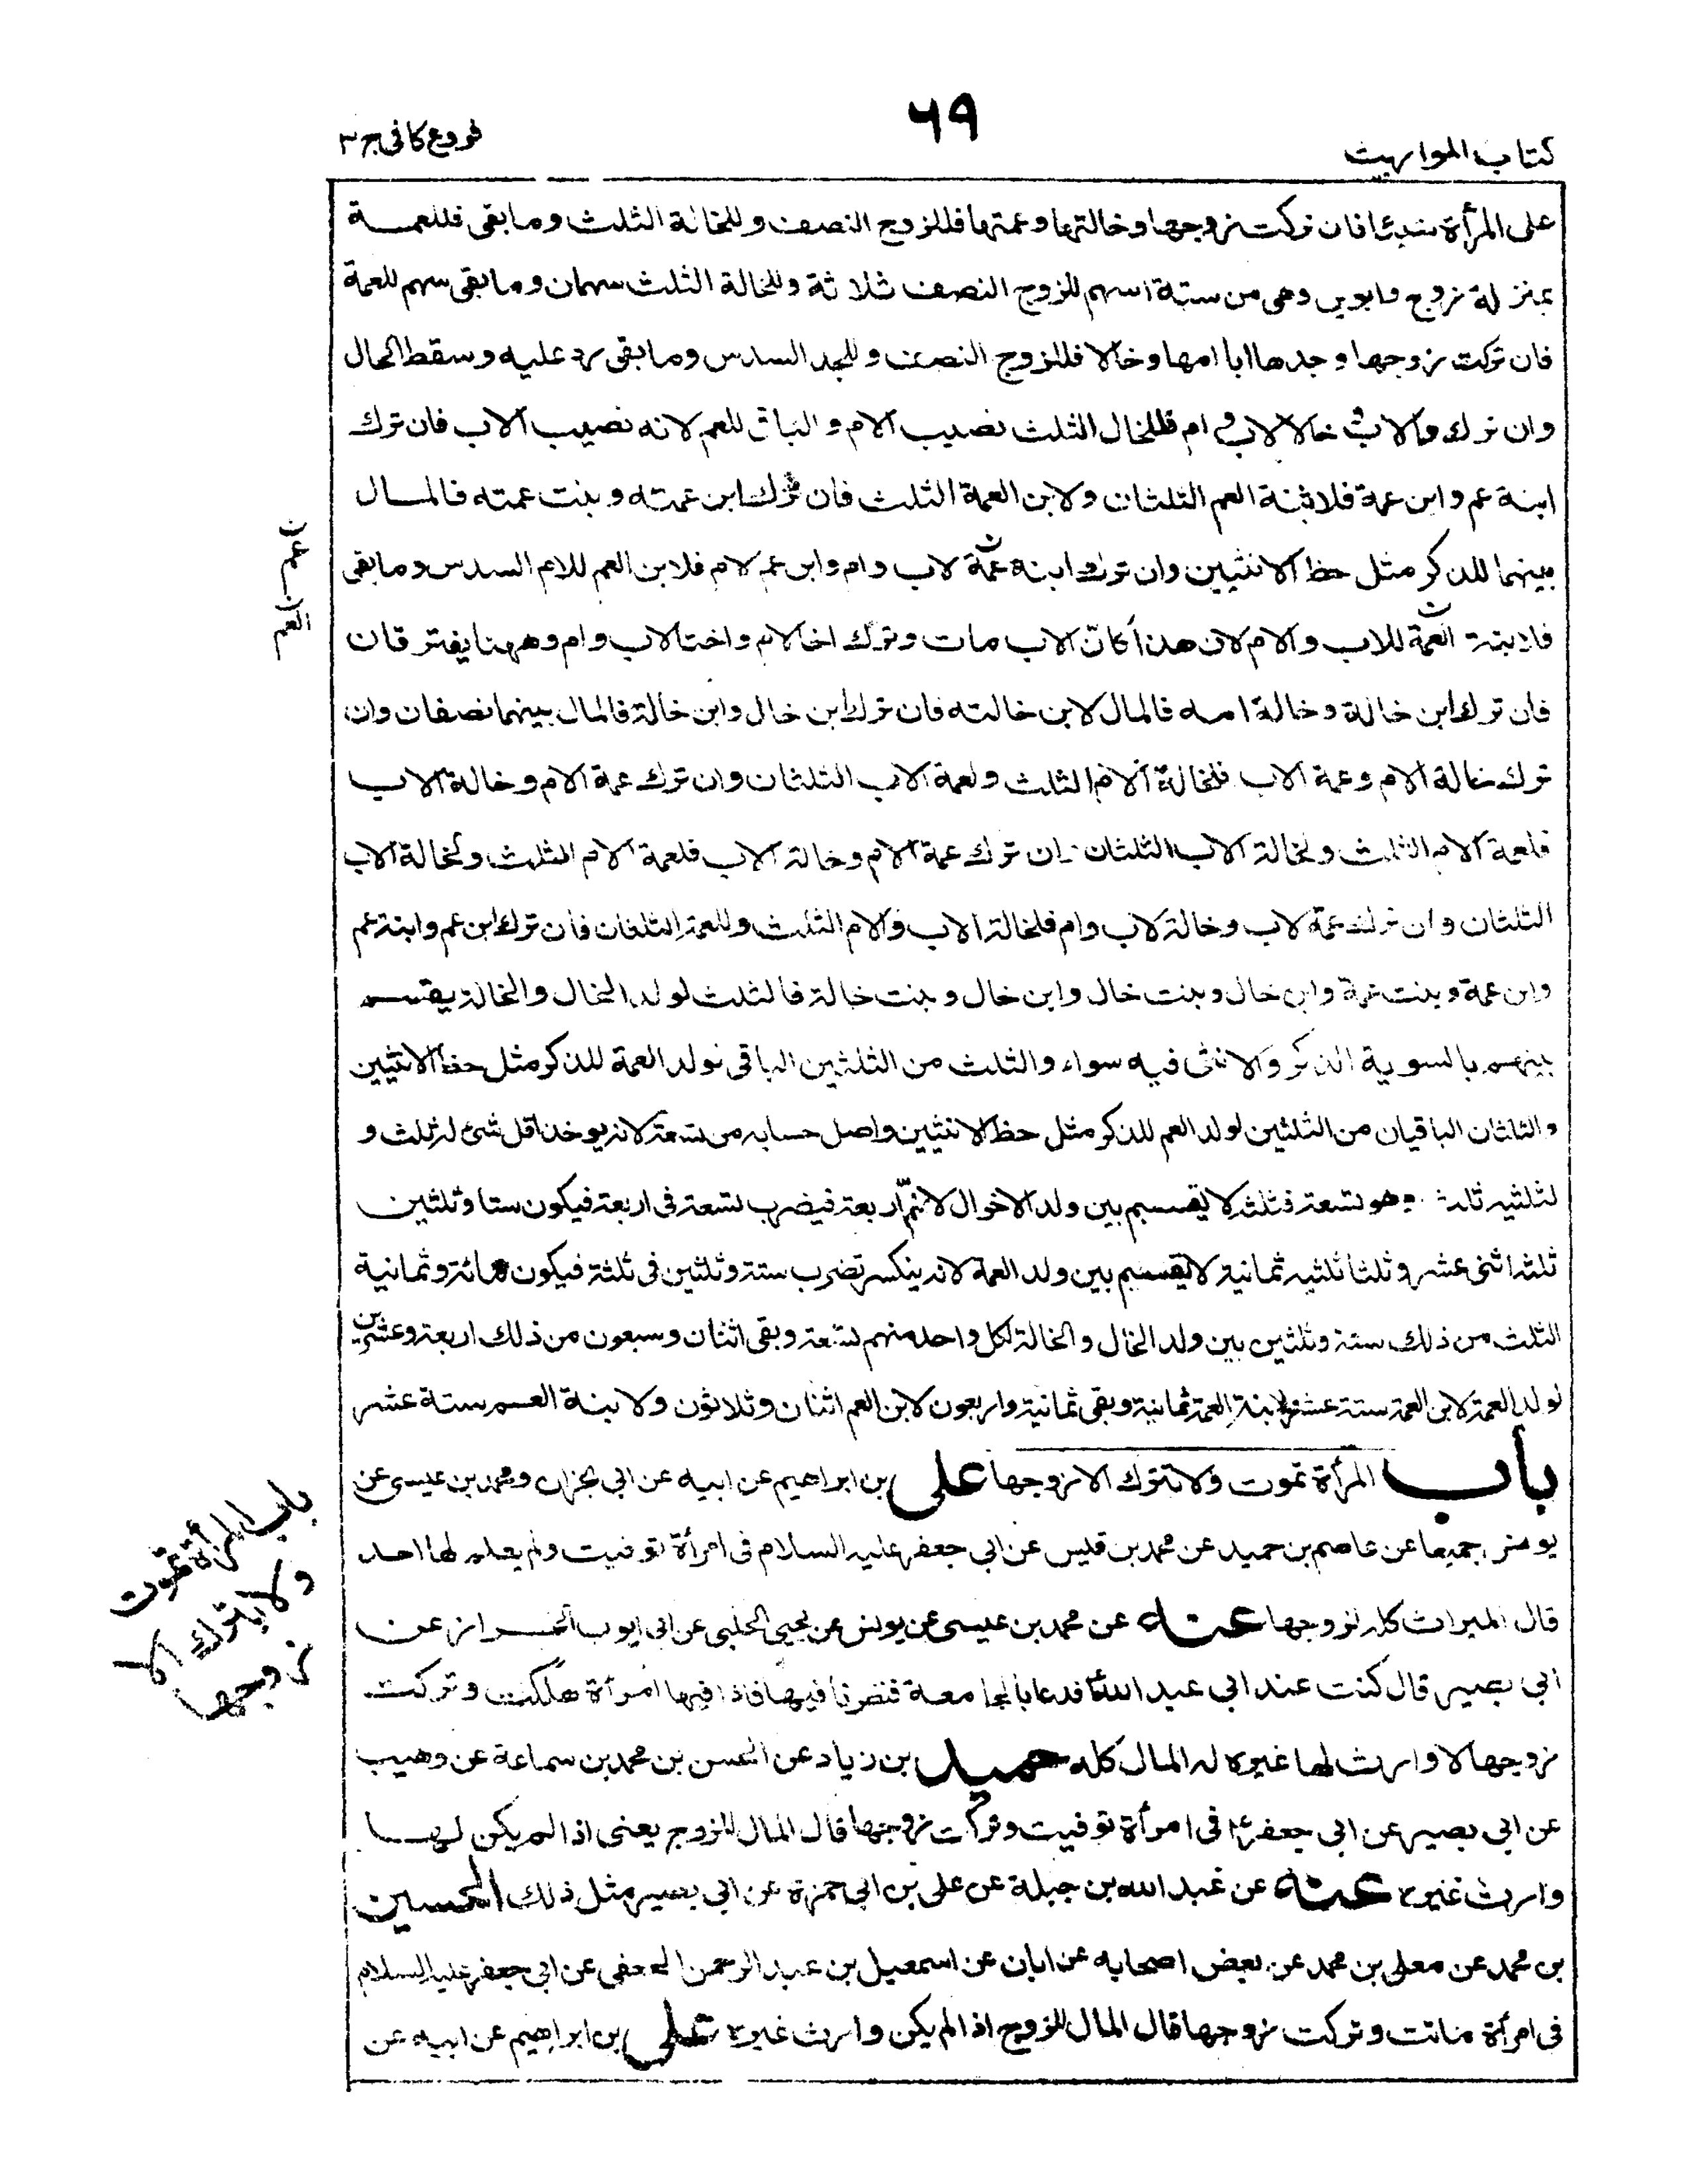 كتاب المواريث
٦٩
فروع كافى ج ٣
على المرأة شيئا فان تركت زوجها وخالتها وعمتها فللزوج النصف وللخالة الثلث وما بقى فللعمــة
بمنزلة زوج وابوين وهى من ستة اسهم للزوج النصف ثلاثة وللخالة الثلث سهمان وما بقى سهم للعمة
فان تركت زوجها وجدها ابا امها وخالا فللزوج النصف وللجد السدس وما بقى رد عليه وسقط الخال
وان ترك خالا لاب و ام فللخال الثلث نصيب الام والباقى للعم لانه نصيب الاب فان ترك
ابنة عم وابن عمة فلابنة العم الثلثان ولابن العمة الثلث فان ترك ابن عمته وبنت عمته فالمــال
بينهما للذكر مثل حظ الانثيين وان ترك ابنة عمة لاب وام وابن عم لام فلابن العم للام السدس وما بقى
فلابنة العمة للاب والام لان هذا كان الاب مات وترك اخا لام واختا لاب وام وههنا يفترقان
فان ترك ابن خالة وخالة امه فالمال لابن خالته فان ترك ابن خال وابن خالة فالمال بينهما نصفان وان
ترك خالة الام وعمة الاب فلخالة الام الثلث ولعمة الاب الثلثان وان ترك عمة الام وخالة الاب
فلعمة الام الثلث ولخالة الاب الثلثان وان ترك عمة الام وخالة الاب فلعمة الام الثلث ولخالة الاب
الثلثان وان ترك عمة لاب وخالة لاب وام فلخالة الاب والام الثلث وللعمة الثلثان فان ترك ابن عم وابنة عم
وابن عمة وبنت عمة وابن خال وبنت خال وابن خال وبنت خالة فالثلث لولد الخال والخالة يقسم
بينهم بالسوية الذكر والانثى فيه سواء والثلث من الثلثين الباقى لولد العمة للذكر مثل حظ الانثيين
والثلثان الباقيان من الثلثين لولد العم للذكر مثل حظ الانثيين واصل حسابه من تسعة لانه يوخذ اقل شئ له ثلث و
لثلثيه ثلث وهو تسعة فثلثه لا يقسم بين ولد الاخوال لانهم اربعة فيضرب تسعة فى اربعة فيكون ستا وثلثين
ثلثه اثنى عشر وثلثا ثلثيه ثمانية لا يقسم بين ولد العمة لانه ينكسر تضرب ستة وثلثين فى ثلثة فيكون مائة وثمانية
الثلث من ذلك ستة وثلثين بين ولد الخال والخالة لكل واحد منهم تسعة وبقى اثنان وسبعون من ذلك اربعة وعشرين
لولد العمة لابن العمة ستة عشر ولابنة العمة ثمانية وبقى ثمانية واربعون لابن العم اثنان وثلاثون ولابنة العم ستة عشر
باب المرأة تموت ولا تترك الا زوجها على بن ابراهيم عن ابيه عن ابى نجران ومحمد بن عيسى عن
يونس جميعا عن عاصم بن حميد عن محمد بن قيس عن ابى جعفر عليه السلام فى امرأة توفيت ولم يعلم لها احد
قال الميراث كله لزوجها عنه عن محمد بن عيسى عن يونس عن يحيى الحلبى عن ابى ايوب الخراز عن
ابى بصير قال كنت عند ابى عبد الله ع فدعا بالجامعة فنظرنا فيها فاذا فيها امرأة هلكت وتركت
زوجها لا وارث لها غيره له المال كله حميد بن زياد عن الحسن بن محمد بن سماعة عن وهيب
عن ابى بصير عن ابى جعفر ع فى امرأة توفيت وتركت زوجها قال المال للزوج يعنى اذا لم يكن لهــا
وارث غيره عنه عن عبد الله بن جبلة عن على بن ابى حمزة عن ابى بصير مثل ذلك الحسين
بن محمد عن معلى بن محمد عن بعض اصحابه عن ابان عن اسمعيل بن عبد الرحمن الجعفى عن ابى جعفر عليه السلام
فى امرأة ماتت وتركت زوجها قال المال للزوج اذا لم يكن وارث غيره على بن ابراهيم عن ابيه عن
عم ن
العم ن
باب المرأة تموت
ولا يترك الا
زوجها